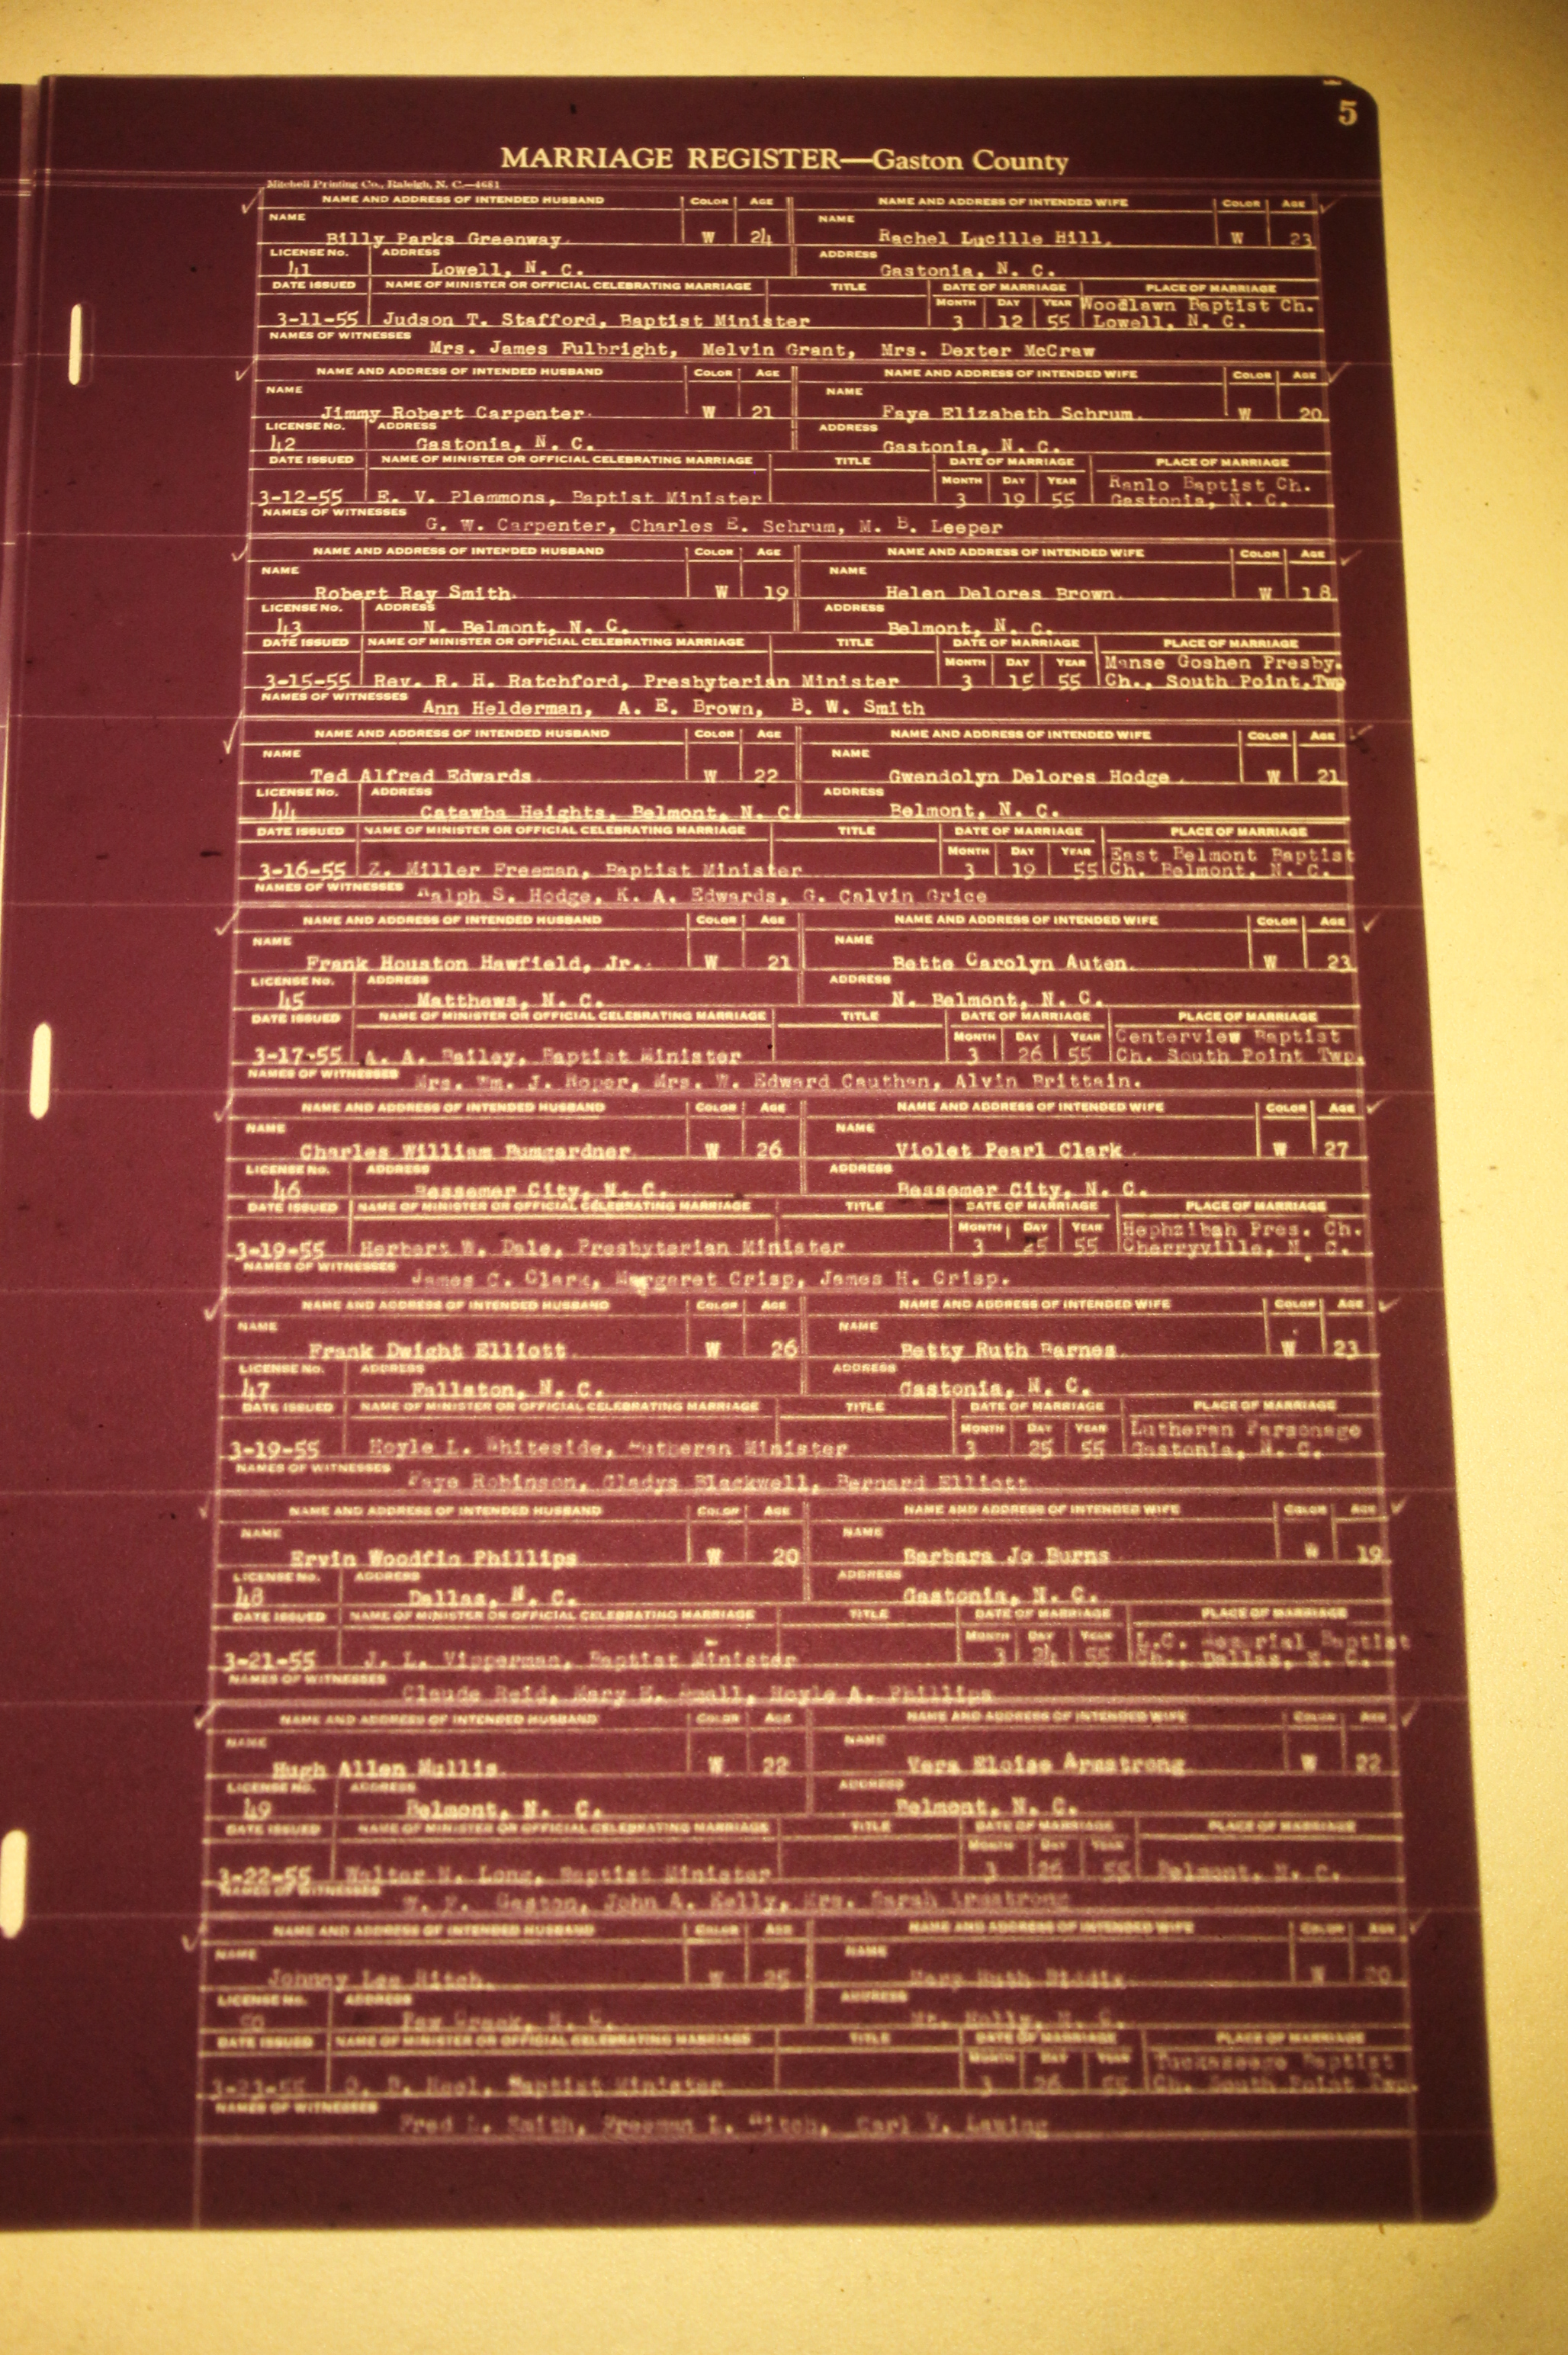 5
MARRIAGE REGISTER—Gaston County
Mitchell Printing Co., Raleigh, N. C.—4681
NAME AND ADDRESS OF INTENDED HUSBAND COLOR AGE NAME AND ADDRESS OF INTENDED WIFE COLOR AGE
NAME NAME
Billy Parks Greenway. W 24 Rachel Lucille Hill. W 23
LICENSE No. ADDRESS ADDRESS
41 Lowell, N. C. Gastonia, N. C.
DATE ISSUED NAME OF MINISTER OR OFFICIAL CELEBRATING MARRIAGE TITLE DATE OF MARRIAGE PLACE OF MARRIAGE
MONTH DAY YEAR Woodlawn Baptist Ch.
3-11-55 Judson T. Stafford, Baptist Minister 3 12 55 Lowell, N. C.
NAMES OF WITNESSES Mrs. James Fulbright, Melvin Grant, Mrs. Dexter McCraw
NAME AND ADDRESS OF INTENDED HUSBAND COLOR AGE NAME AND ADDRESS OF INTENDED WIFE COLOR AGE
NAME NAME
Jimmy Robert Carpenter. W 21 Faye Elizabeth Schrum. W 20
LICENSE No. ADDRESS ADDRESS
42 Gastonia, N. C. Gastonia, N. C.
DATE ISSUED NAME OF MINISTER OR OFFICIAL CELEBRATING MARRIAGE TITLE DATE OF MARRIAGE PLACE OF MARRIAGE
MONTH DAY YEAR Ranlo Baptist Ch.
3-12-55 E. V. Plemmons, Baptist Minister 3 19 55 Gastonia, N. C.
NAMES OF WITNESSES G. W. Carpenter, Charles E. Schrum, M. B. Leeper
NAME AND ADDRESS OF INTENDED HUSBAND COLOR AGE NAME AND ADDRESS OF INTENDED WIFE COLOR AGE
NAME NAME
Robert Ray Smith. W 19 Helen Delores Brown. W 18
LICENSE No. ADDRESS ADDRESS
43 N. Belmont, N. C. Belmont, N. C.
DATE ISSUED NAME OF MINISTER OR OFFICIAL CELEBRATING MARRIAGE TITLE DATE OF MARRIAGE PLACE OF MARRIAGE
MONTH DAY YEAR Manse Goshen Presby.
3-15-55 Rev. R. H. Ratchford, Presbyterian Minister 3 15 55 Ch., South Point,Twp
NAMES OF WITNESSES Ann Helderman, A. E. Brown, B. W. Smith
NAME AND ADDRESS OF INTENDED HUSBAND COLOR AGE NAME AND ADDRESS OF INTENDED WIFE COLOR AGE
NAME NAME
Ted Alfred Edwards. W 22 Gwendolyn Delores Hodge. W 21
LICENSE No. ADDRESS ADDRESS
44 Catawba Heights, Belmont, N. C. Belmont, N. C.
DATE ISSUED NAME OF MINISTER OR OFFICIAL CELEBRATING MARRIAGE TITLE DATE OF MARRIAGE PLACE OF MARRIAGE
MONTH DAY YEAR East Belmont Baptist
3-16-55 Z. Miller Freeman, Baptist Minister 3 19 55 Ch. Belmont, N. C.
NAMES OF WITNESSES Ralph S. Hodge, K. A. Edwards, G. Calvin Grice
NAME AND ADDRESS OF INTENDED HUSBAND COLOR AGE NAME AND ADDRESS OF INTENDED WIFE COLOR AGE
NAME NAME
Frank Houston Hawfield, Jr. W 21 Bette Carolyn Auten. W 23
LICENSE No. ADDRESS ADDRESS
45 Matthews, N. C. N. Belmont, N. C.
DATE ISSUED NAME OF MINISTER OR OFFICIAL CELEBRATING MARRIAGE TITLE DATE OF MARRIAGE PLACE OF MARRIAGE
MONTH DAY YEAR Centerview Baptist
3-17-55 A. A. Bailey, Baptist Minister 3 26 55 Ch. South Point Twp.
NAMES OF WITNESSES Mrs. Wm. J. Roper, Mrs. W. Edward Cauthen, Alvin Brittain.
NAME AND ADDRESS OF INTENDED HUSBAND COLOR AGE NAME AND ADDRESS OF INTENDED WIFE COLOR AGE
NAME NAME
Charles William Bumgardner. W 26 Violet Pearl Clark. W 27
LICENSE No. ADDRESS ADDRESS
46 Bessemer City, N. C. Bessemer City, N. C.
DATE ISSUED NAME OF MINISTER OR OFFICIAL CELEBRATING MARRIAGE TITLE DATE OF MARRIAGE PLACE OF MARRIAGE
MONTH DAY YEAR Hephzibah Pres. Ch.
3-19-55 Herbert W. Dale, Presbyterian Minister 3 25 55 Cherryville, N. C.
NAMES OF WITNESSES James C. Clark, Margaret Crisp, James H. Crisp.
NAME AND ADDRESS OF INTENDED HUSBAND COLOR AGE NAME AND ADDRESS OF INTENDED WIFE COLOR AGE
NAME NAME
Frank Dwight Elliott. W 26 Betty Ruth Barnes. W 23
LICENSE No. ADDRESS ADDRESS
47 Fallston, N. C. Gastonia, N. C.
DATE ISSUED NAME OF MINISTER OR OFFICIAL CELEBRATING MARRIAGE TITLE DATE OF MARRIAGE PLACE OF MARRIAGE
MONTH DAY YEAR Lutheran Parsonage
3-19-55 Hoyle L. Whiteside, Lutheran Minister 3 25 55 Gastonia, N. C.
NAMES OF WITNESSES Faye Robinson, Gladys Blackwell, Bernard Elliott
NAME AND ADDRESS OF INTENDED HUSBAND COLOR AGE NAME AND ADDRESS OF INTENDED WIFE COLOR AGE
NAME NAME
Ervin Woodfin Phillips W 20 Barbara Jo Burns W 19
LICENSE No. ADDRESS ADDRESS
48 Dallas, N. C. Gastonia, N. C.
DATE ISSUED NAME OF MINISTER OR OFFICIAL CELEBRATING MARRIAGE TITLE DATE OF MARRIAGE PLACE OF MARRIAGE
MONTH DAY YEAR L.C. Memorial Baptist
3-21-55 J. L. Vipperman, Baptist Minister 3 24 55 Ch., Dallas, N. C.
NAMES OF WITNESSES Claude Reid, Mary E. Small, Hoyle A. Phillips
NAME AND ADDRESS OF INTENDED HUSBAND COLOR AGE NAME AND ADDRESS OF INTENDED WIFE COLOR AGE
NAME NAME
Hugh Allen Mullis. W 22 Vera Eloise Armstrong W 22
LICENSE No. ADDRESS ADDRESS
49 Belmont, N. C. Belmont, N. C.
DATE ISSUED NAME OF MINISTER OR OFFICIAL CELEBRATING MARRIAGE TITLE DATE OF MARRIAGE PLACE OF MARRIAGE
MONTH DAY YEAR
3-22-55 Walter N. Long, Baptist Minister 3 26 55 Belmont, N. C.
NAMES OF WITNESSES W. F. Gaston, John A. Kelly, Mrs. Sarah Armstrong
NAME AND ADDRESS OF INTENDED HUSBAND COLOR AGE NAME AND ADDRESS OF INTENDED WIFE COLOR AGE
NAME NAME
Johnny Lee Hitch. W 25 Mary Ruth W 20
LICENSE No. ADDRESS ADDRESS
50 Paw Creek, N. C. Mt. Holly, N. C.
DATE ISSUED NAME OF MINISTER OR OFFICIAL CELEBRATING MARRIAGE TITLE DATE OF MARRIAGE PLACE OF MARRIAGE
MONTH DAY YEAR Tuckaseege Baptist
3-23-55 Baptist Minister 3 26 55 Ch. South Point Twp.
NAMES OF WITNESSES Fred L. Smith, Freeman L. Hitch, Carl V. Lawing